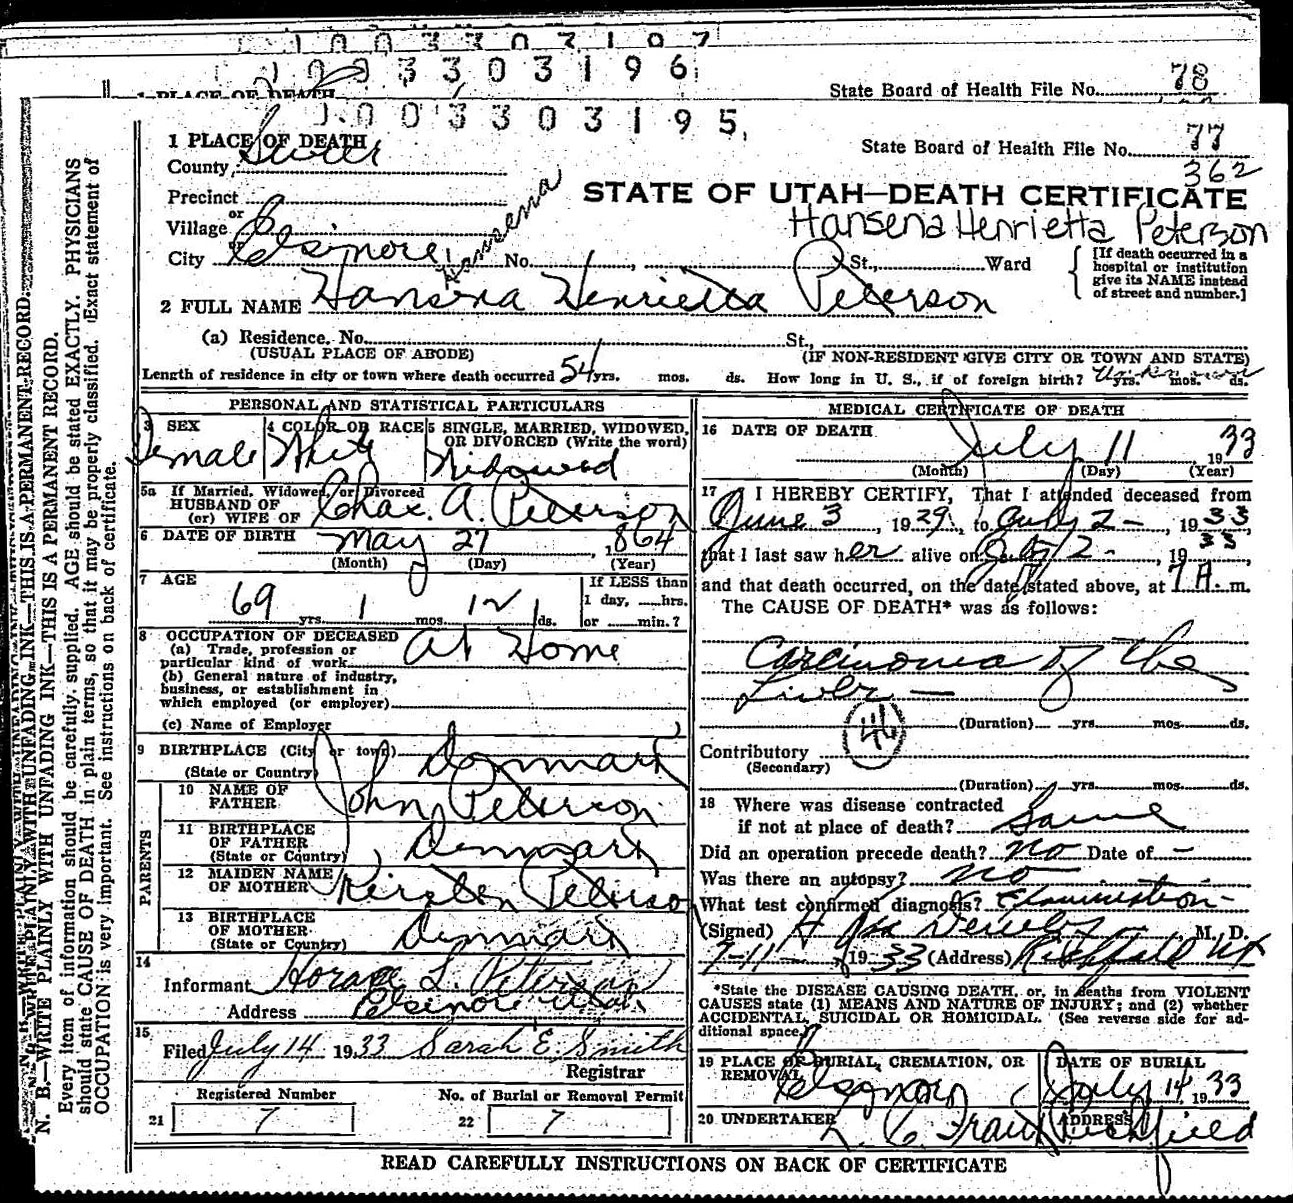 1 0 0 3 3 0 3 1 9 7
1 0 0 3 3 0 3 1 9 6
78
1 PLACE OF DEATH
State Board of Health File No.
1 0 0 3 3 0 3 1 9 5
1 PLACE OF DEATH
State Board of Health File No. 77
County Sevier
362
Precinct
STATE OF UTAH—DEATH CERTIFICATE
or
Village
Hansena Henrietta Peterson
or
City Elsinore
Hansena
No. , St., Ward
[If death occurred in a hospital or institution give its NAME instead of street and number.]
2 FULL NAME Hansena Henrietta Peterson
(a) Residence. No. St.,
(USUAL PLACE OF ABODE) (IF NON-RESIDENT GIVE CITY OR TOWN AND STATE)
Length of residence in city or town where death occurred 54 yrs. mos. ds. How long in U. S., if of foreign birth? Unknown yrs. mos. ds.
PERSONAL AND STATISTICAL PARTICULARS
3 SEX Female
4 COLOR OR RACE White
5 SINGLE, MARRIED, WIDOWED, OR DIVORCED (Write the word) Widowed
5a If Married, Widowed, or Divorced
HUSBAND OF
(or) WIFE OF Chas. A. Peterson
6 DATE OF BIRTH May 27, 1864
(Month) (Day) (Year)
7 AGE
69 yrs. 1 mos. 12 ds.
If LESS than
1 day, hrs.
or min.?
8 OCCUPATION OF DECEASED
(a) Trade, profession or
particular kind of work At Home
(b) General nature of industry,
business, or establishment in
which employed (or employer)
(c) Name of Employer
9 BIRTHPLACE (City or town)
(State or Country) Denmark
PARENTS
10 NAME OF
FATHER John Peterson
11 BIRTHPLACE
OF FATHER
(State or Country) Denmark
12 MAIDEN NAME
OF MOTHER Kirsten Peterson
13 BIRTHPLACE
OF MOTHER
(State or Country) Denmark
14
Informant Horace L. Peterson
Address Elsinore Utah
15
Filed July 14 1933 Sarah E. Smith
Registrar
Registered Number
21 7
No. of Burial or Removal Permit
22 7
MEDICAL CERTIFICATE OF DEATH
16 DATE OF DEATH
July 11 1933
(Month) (Day) (Year)
17 I HEREBY CERTIFY, That I attended deceased from
June 3, 1929, to July 2-, 1933,
that I last saw her alive on July 2-, 1933,
and that death occurred, on the date stated above, at 7 A. m.
The CAUSE OF DEATH* was as follows:
Carcinoma of the
Liver —
46
(Duration) yrs. mos. ds.
Contributory
(Secondary)
(Duration) yrs. mos. ds.
18 Where was disease contracted
if not at place of death? Same
Did an operation precede death? no Date of -
Was there an autopsy? no
What test confirmed diagnosis? Examination -
(Signed) , M. D.
7-11-, 1933 (Address) Richfield Ut
*State the DISEASE CAUSING DEATH, or, in deaths from VIOLENT
CAUSES state (1) MEANS AND NATURE OF INJURY; and (2) whether
ACCIDENTAL, SUICIDAL OR HOMICIDAL. (See reverse side for ad-
ditional space.)
19 PLACE OF BURIAL, CREMATION, OR
REMOVAL Elsinore
DATE OF BURIAL
July 14 1933
20 UNDERTAKER
ADDRESS
Richfield
READ CAREFULLY INSTRUCTIONS ON BACK OF CERTIFICATE
N. B.—WRITE PLAINLY WITH UNFADING INK—THIS IS A PERMANENT RECORD.
Every item of information should be carefully supplied. AGE should be stated EXACTLY. PHYSICIANS
should state CAUSE OF DEATH in plain terms, so that it may be properly classified. Exact statement of
OCCUPATION is very important. See instructions on back of certificate.